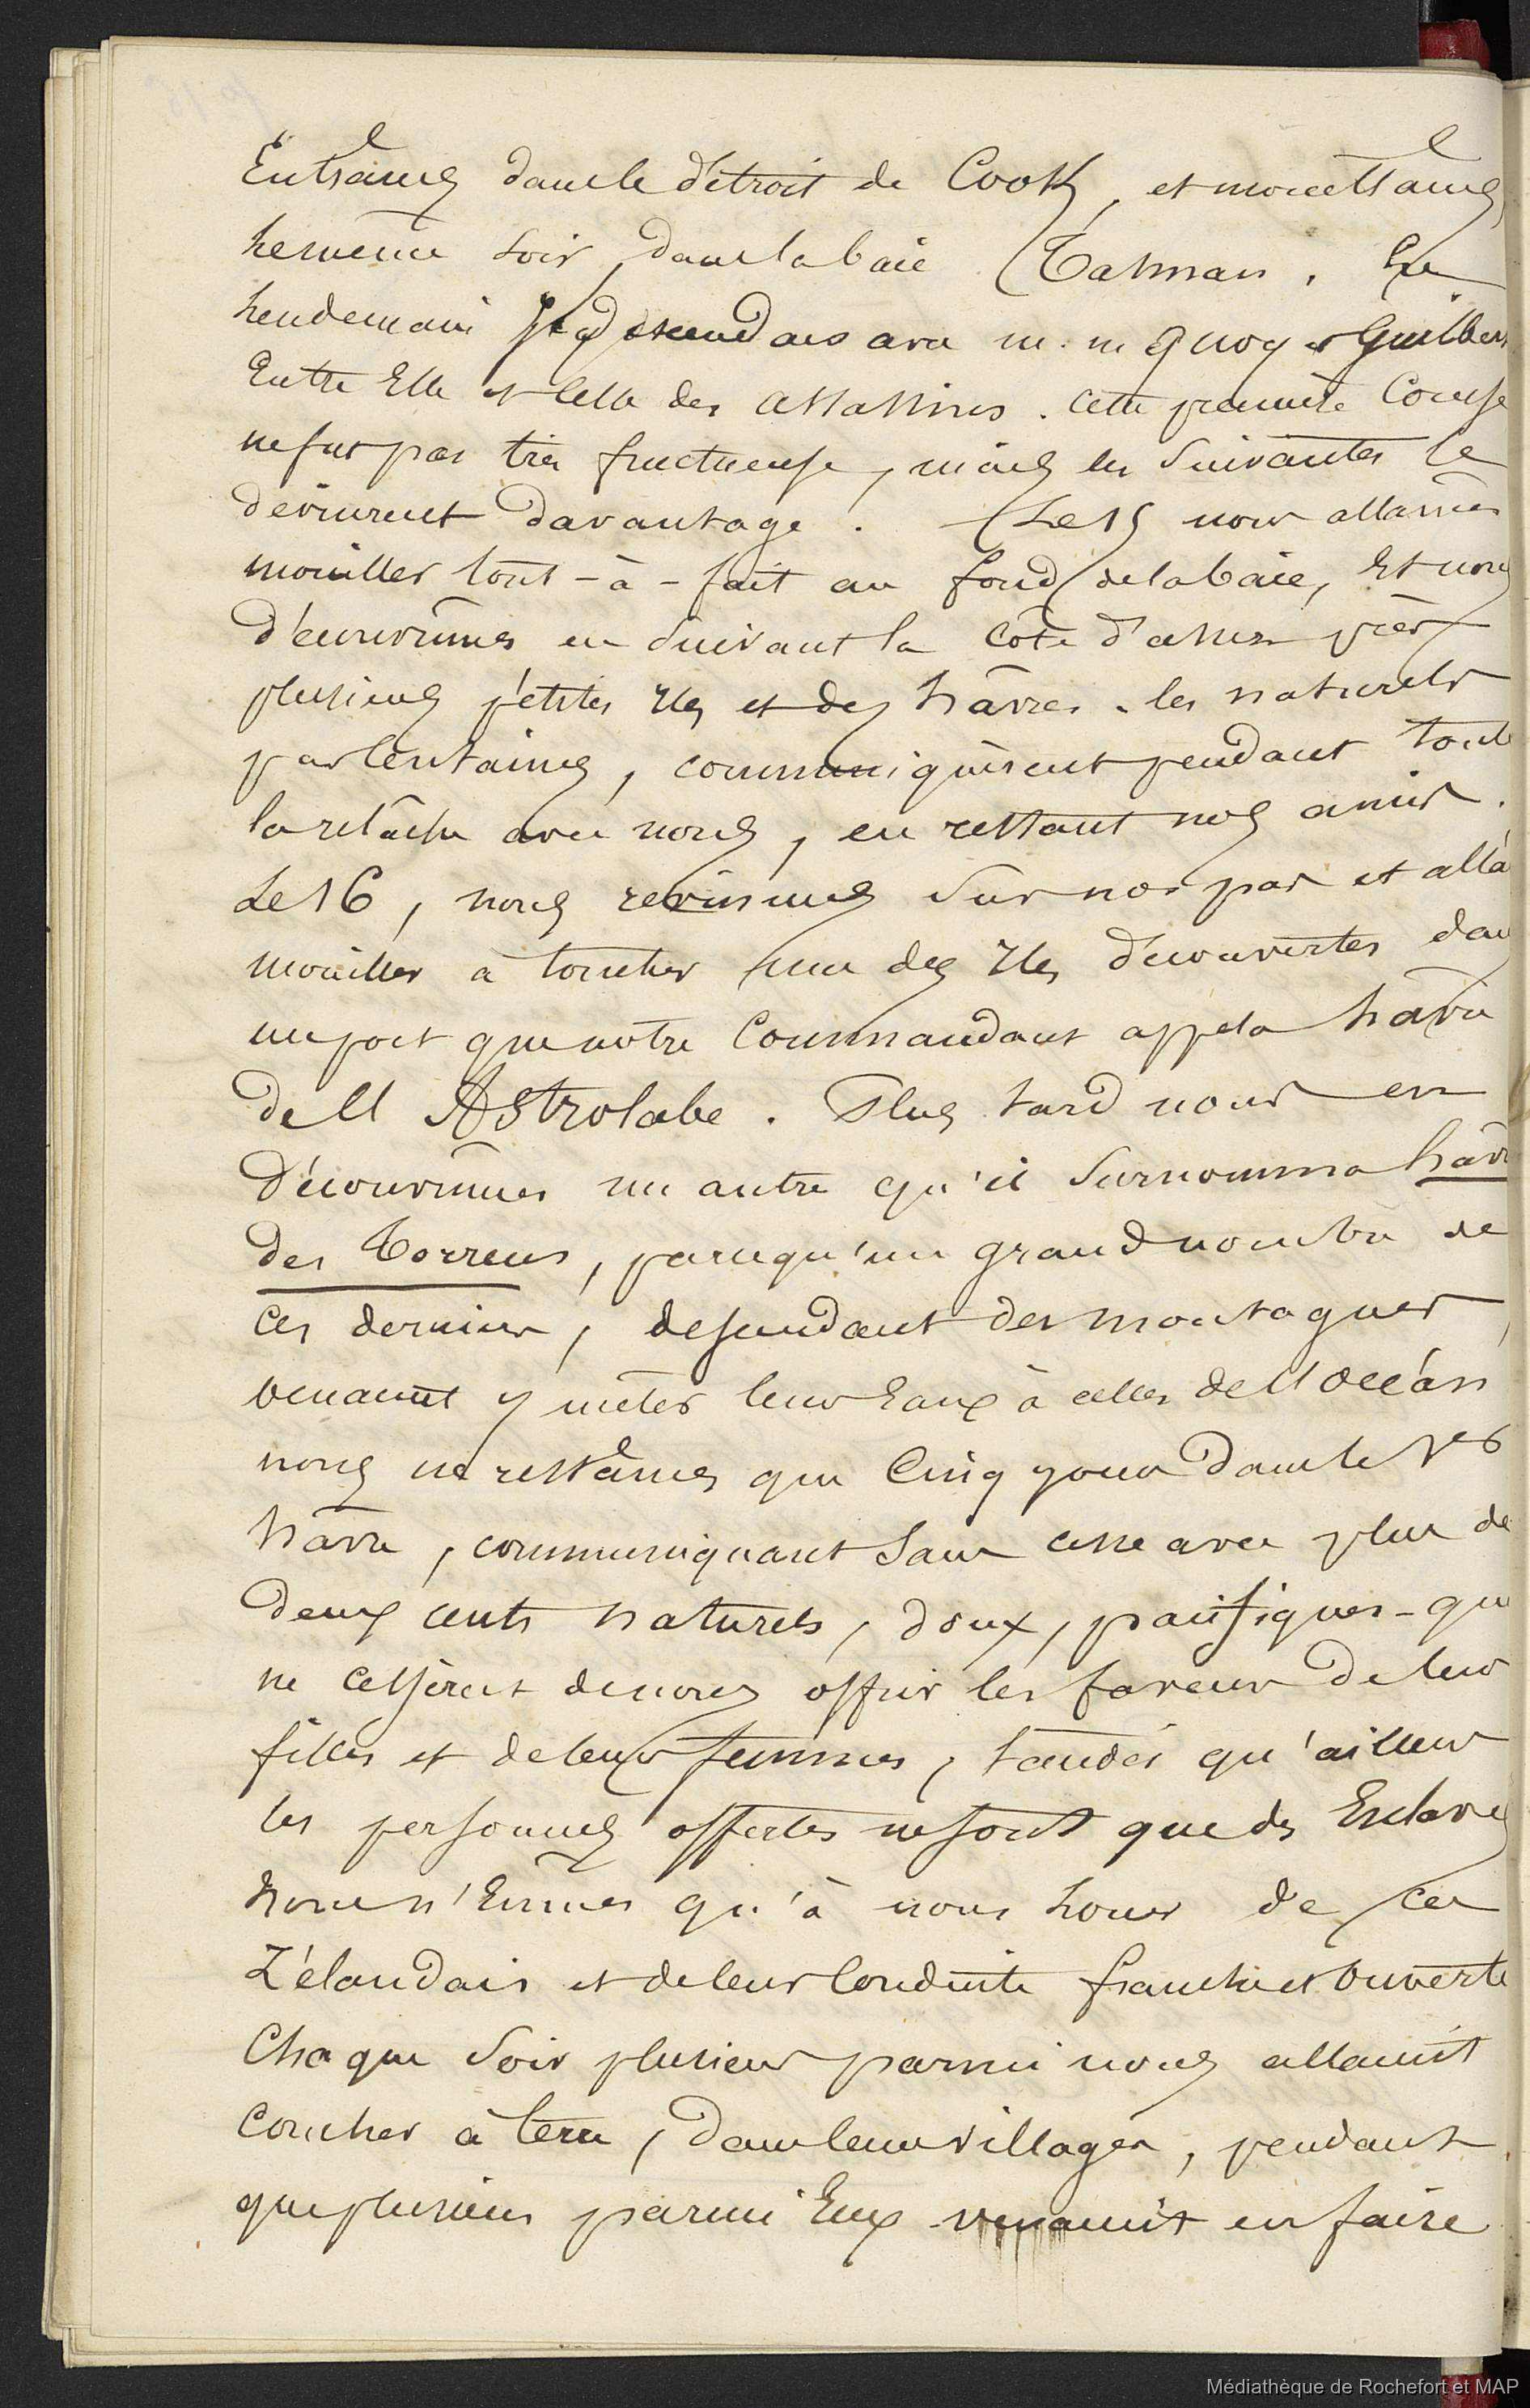 Entrâmes dans le détroit de Cook, et mouillames
le même soir, dans la baie Tasman. Le
lendemain je descendais avec m. m Quoy et Guilbert
Entre Elle et celle des assassins. cette première Course
ne fut pas très fructueuse, mais les suivantes le
devinrent davantage. Le 15 nous allames
mouiller tout-à-fait au fond de la baie, Et nous
découvrîmes en suivant la côte d'assez près
plusieurs pétites Iles et des hâvres. les naturels
par centaines, communiquèrent pendant toute
la relâche avec nous, en restant nos amis.
Le 16, nous revinmes sur nos pas et alla
mouiller à toucher une des Iles découvertes dan
un port que notre Commandant appela hâvre
de l'Astrolabe. Plus tard nous en
découvrîmes un autre qu'il surnomma hâvr
des Torrens, parcequ'un grand nombre de
ces derniers, descendant des montagnes,
venaient y mêler leurs Eaux à celles de l'océan
nous ne restâmes que Cinq jours dans le 1er
hâvre, communiquant sans cesse avec plus de
deux cents naturels, doux, pacifiques - qui
ne cessèrent de nous offrir les faveurs de leurs
filles et de leurs femmes, tandis qu'ailleurs
les personnes offertes ne sont que des Esclaves
nous n'Eûmes qu'à nous louer de ces
Zélandais et de leur conduite franche et ouverte
Chaque soir plusieurs parmi nous allaient
coucher à terre, dans leurs villages, pendant
que plusieurs parmi Eux venaient en faire
Médiathèque de Rochefort et MAP